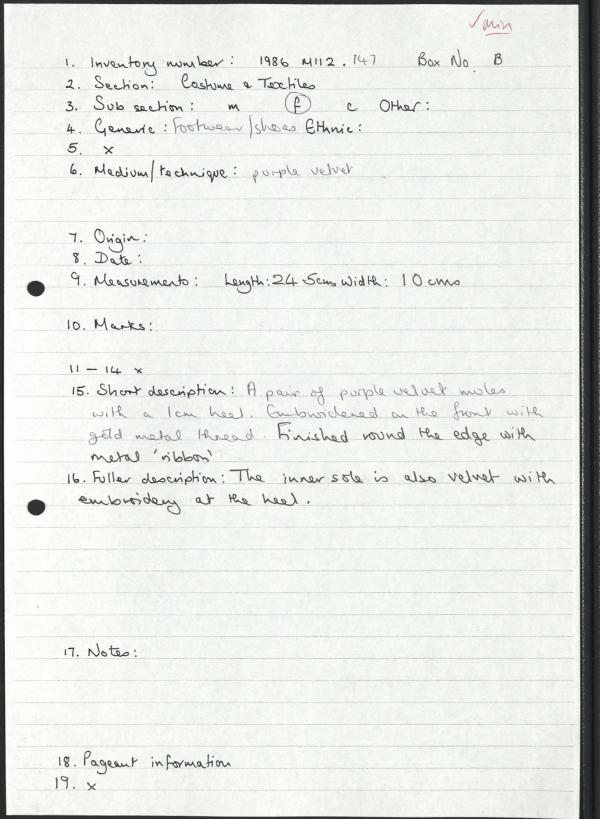 ✓ min
1. Inventory number: 1986 M112.147 Box No. B
2. Section: Costume & Textiles
3. Sub section: m f c Other:
4. Generic: Footwear/shoes Ethnic:
5. x
6. Medium/technique: purple velvet
7. Origin:
8. Date:
9. Measurements: Length: 24.5cms Width: 10cms
10. Marks:
11 - 14 x
15. Short description: A pair of purple velvet mules
with a 1cm heel. Embroidered on the front with
gold metal thread. Finished round the edge with
metal 'ribbon'
16. Fuller description: The inner sole is also velvet with
embroidery at the heel.
17. Notes:
18. Pageant information
19. x